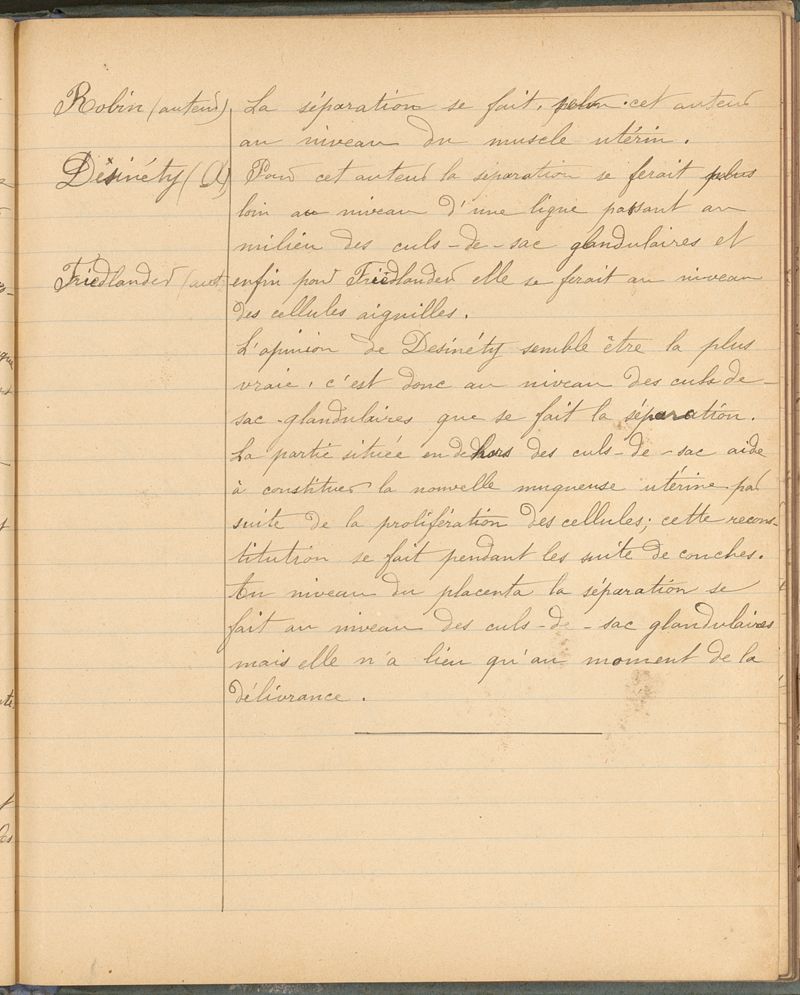 Robin (auteur) La séparation se fait, selon cet auteur
au niveau du muscle utérin.
Désinéty (A) Pour cet auteur la séparation se ferait plus
loin au niveau d'une ligne passant au
milieu des culs-de-sac glandulaires et
Friedlander (aut enfin pour Friedlander elle se ferait au niveau
des cellules aiguilles.
L'opinion de Desinéty semble être la plus
vraie, c'est donc au niveau des culs de-
sac-glandulaires que se fait la séparation.
La partie située en dehors des culs-de-sac aide
à constituer la nouvelle muqueuse utérine par
suite de la prolifération des cellules; cette recons-
titution se fait pendant les suite de couches.
Au niveau du placenta la séparation se
fait au niveau des culs-de-sac glandulaires
mais elle n'a lieu qu'au moment de la
délivrance.